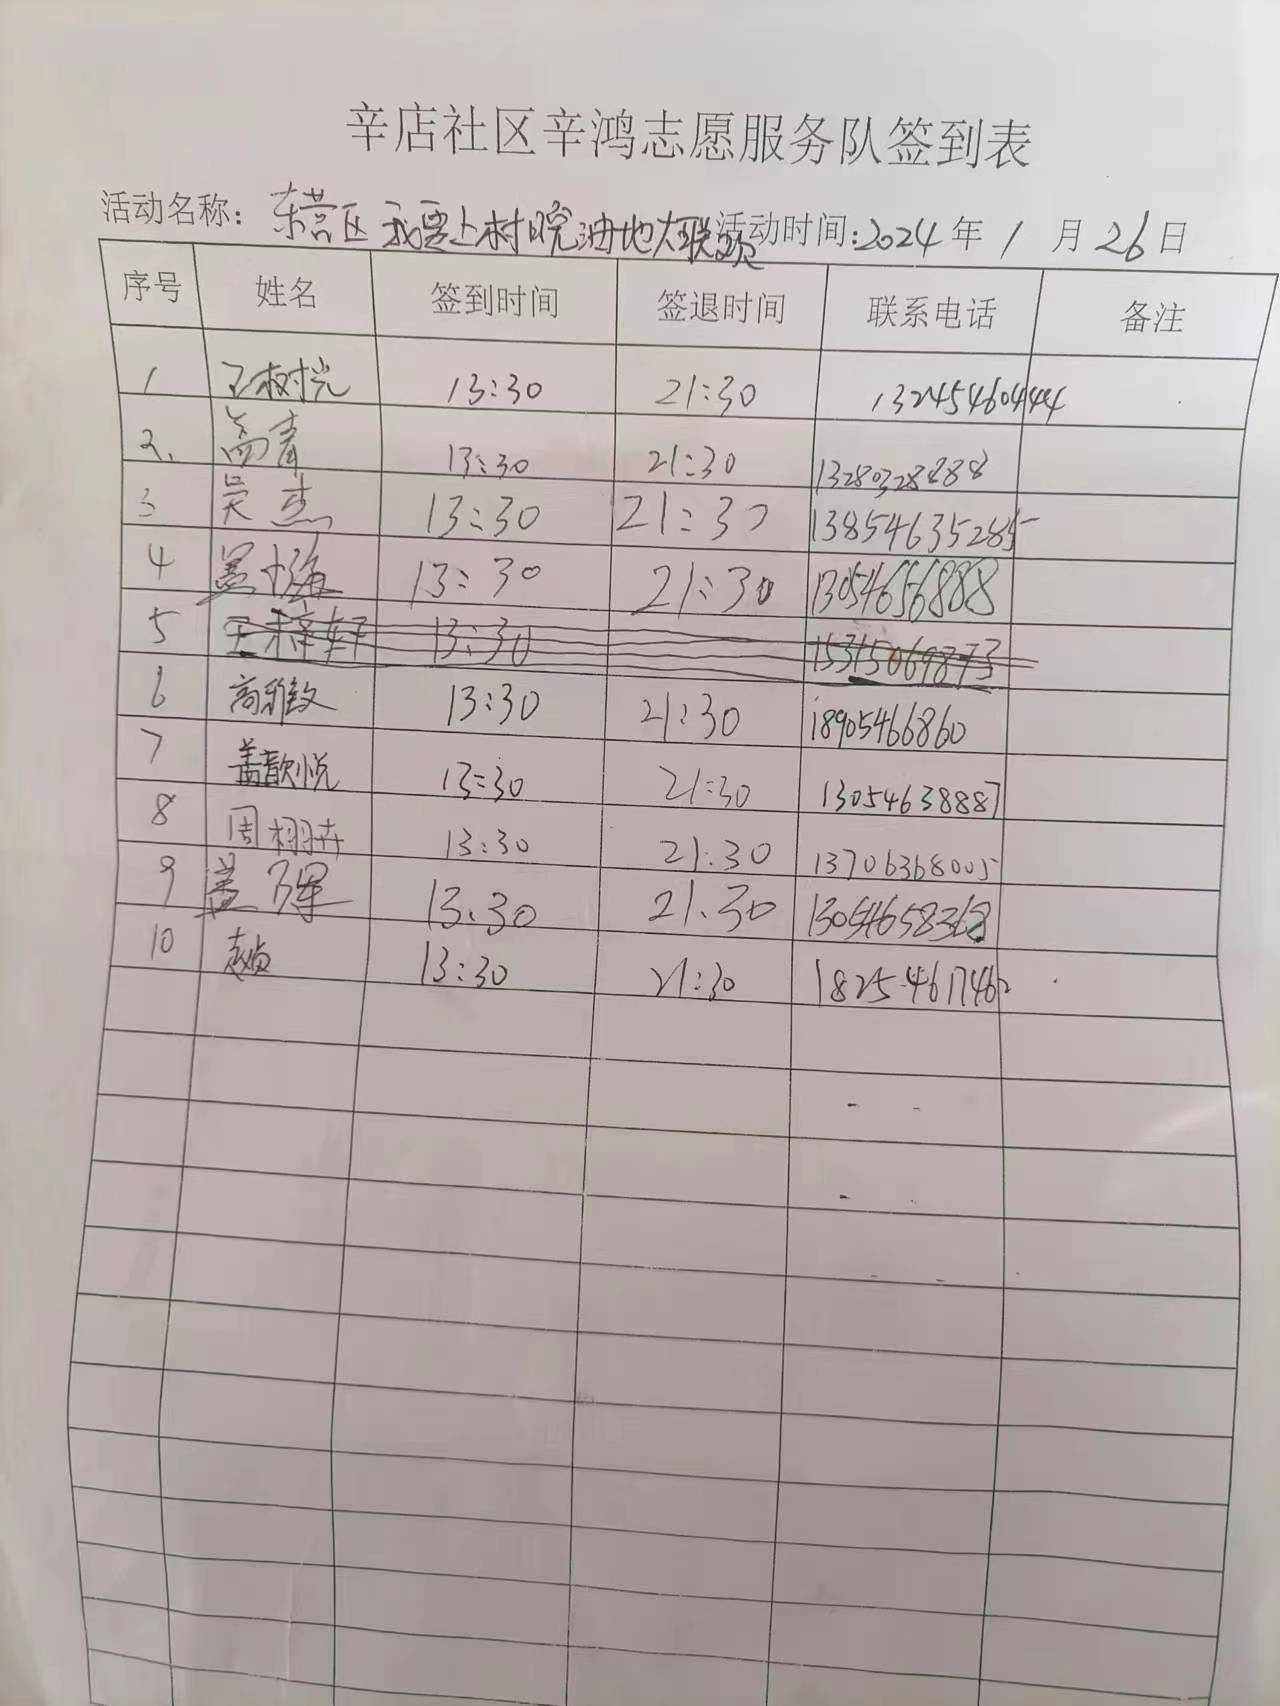 辛店社区辛鸿志愿服务队签到表
活动名称：东营区我要上村晚油地大联欢 活动时间：2024年1月26日
序号 姓名 签到时间 签退时间 联系电话 备注
1 王树光 13:30 21:30 13245460444
2、 高青 13:30 21:30 13280328888
3 吴杰 13:30 21:30 13854635285
4 盖海 13:30 21:30 13054656888
5 王梓轩 13:30 15315069873
6 高雅致 13:30 21:30 18905466860
7 盖歆悦 13:30 21:30 13054638887
8 周栩卉 13:30 21:30 13706368005
9 盖 13.30 21.30 13054658368
10 赵贞 13:30 21:30 18254617462